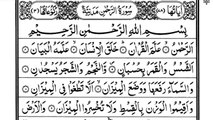 آیاتها ٧٨ سُوْرَةُ الرَّحْمٰن مَدَنِيَّة رکوعاتها ٣
بِسْمِ اللهِ الرَّحْمٰنِ الرَّحِيْمِ
اَلرَّحْمٰنُ عَلَّمَ الْقُرْاٰنَ خَلَقَ الْاِنْسَانَ عَلَّمَهُ الْبَيَانَ
اَلشَّمْسُ وَالْقَمَرُ بِحُسْبَانٍ وَّالنَّجْمُ وَالشَّجَرُ يَسْجُدٰنِ
وَالسَّمَآءَ رَفَعَهَا وَوَضَعَ الْمِيْزَانَ اَلَّا تَطْغَوْا فِي الْمِيْزَانِ
وَاَقِيْمُوا الْوَزْنَ بِالْقِسْطِ وَلَا تُخْسِرُوا الْمِيْزَانَ وَالْاَرْضَ